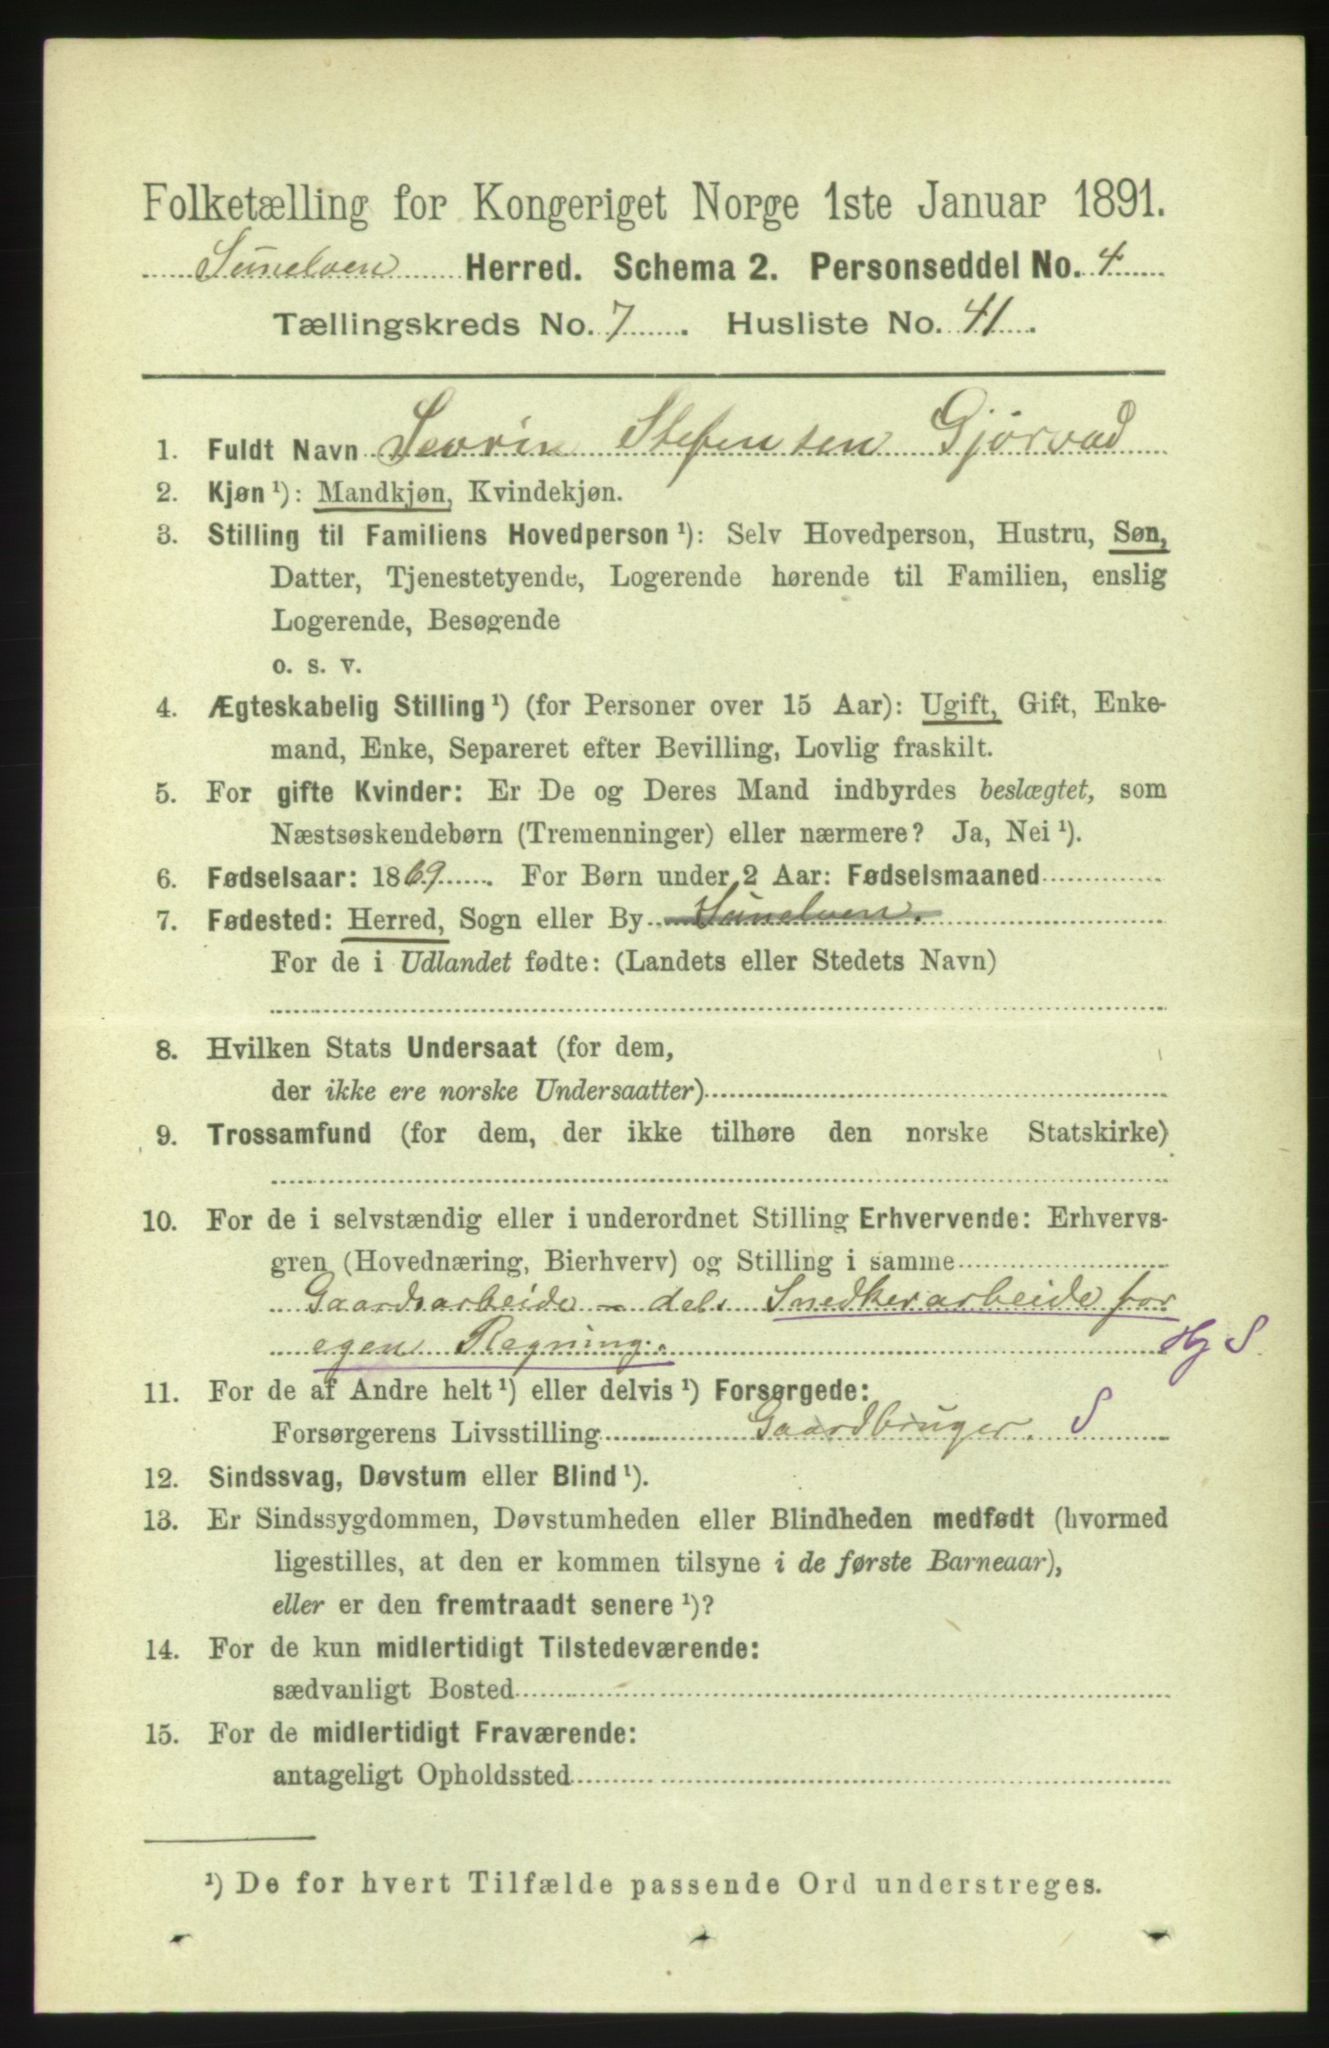 Folketælling for Kongeriget Norge 1ste Januar 1891.
Sunelven Herred. Schema 2. Personseddel No. 4
Tællingskreds No. 7. Husliste No. 41.
1. Fuldt Navn Sevrin Stefensen Gjørvad
2. Kjøn ¹): Mandkjøn, Kvindekjøn.
3. Stilling til Familiens Hovedperson ¹): Selv Hovedperson, Hustru, Søn,
Datter, Tjenestetyende, Logerende hørende til Familien, enslig
Logerende, Besøgende
o. s. v.
4. Ægteskabelig Stilling ¹) (for Personer over 15 Aar): Ugift, Gift, Enke-
mand, Enke, Separeret efter Bevilling, Lovlig fraskilt.
5. For gifte Kvinder: Er De og Deres Mand indbyrdes beslægtet, som
Næstsøskendebørn (Tremenninger) eller nærmere? Ja, Nei ¹).
6. Fødselsaar: 1869. For Børn under 2 Aar: Fødselsmaaned
7. Fødested: Herred, Sogn eller By Sunelven.
For de i Udlandet fødte: (Landets eller Stedets Navn)
8. Hvilken Stats Undersaat (for dem,
der ikke ere norske Undersaatter)
9. Trossamfund (for dem, der ikke tilhøre den norske Statskirke)
10. For de i selvstændig eller i underordnet Stilling Erhvervende: Erhvervs-
gren (Hovednæring, Bierhverv) og Stilling i samme
Gaardsarbeide - dels Snedkerarbeide for
egen Regning. Hj S
11. For de af Andre helt ¹) eller delvis ¹) Forsørgede:
Forsørgerens Livsstilling Gaardbruger. S
12. Sindssvag, Døvstum eller Blind ¹).
13. Er Sindssygdommen, Døvstumheden eller Blindheden medfødt (hvormed
ligestilles, at den er kommen tilsyne i de første Barneaar),
eller er den fremtraadt senere ¹)?
14. For de kun midlertidigt Tilstedeværende:
sædvanligt Bosted
15. For de midlertidigt Fraværende:
antageligt Opholdssted
¹) De for hvert Tilfælde passende Ord understreges.